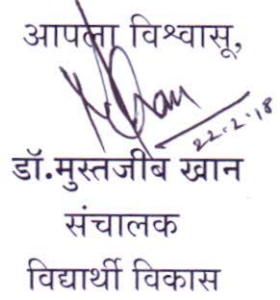 आपला विश्वासू,
22.2.18
डॉ.मुस्तजीब खान
संचालक
विद्यार्थी विकास